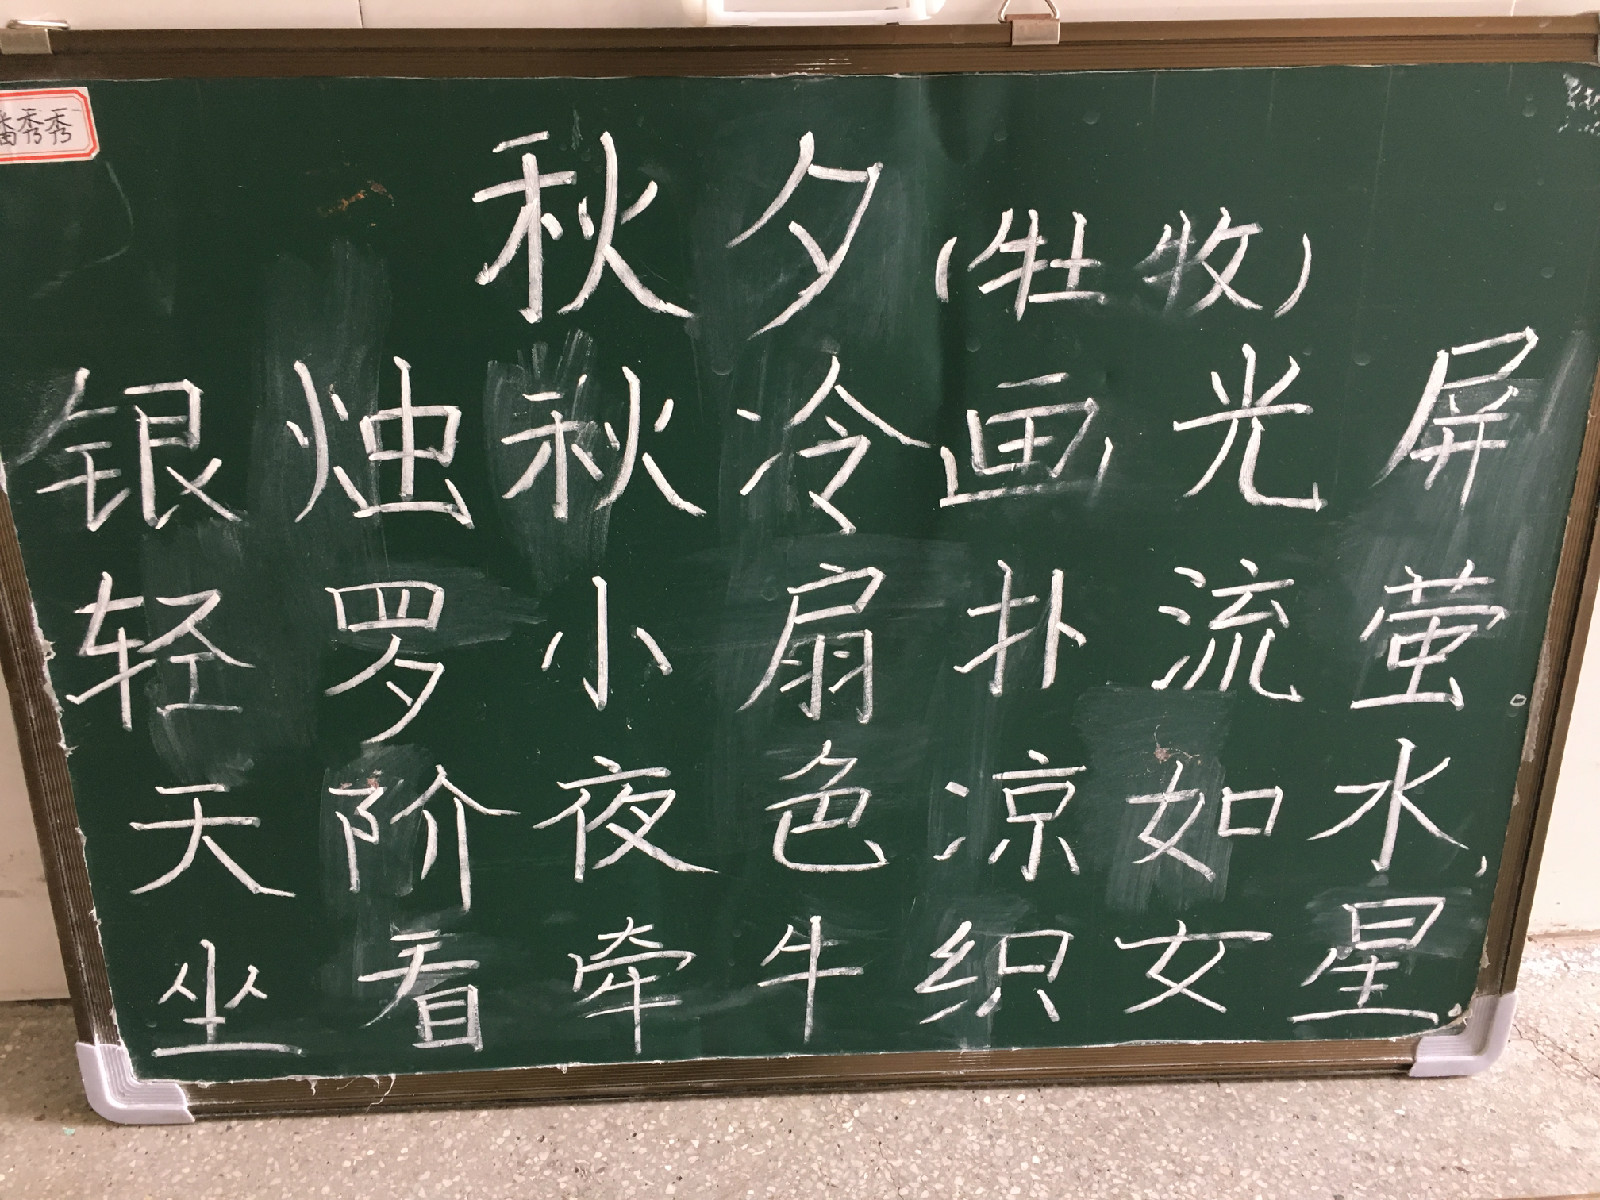 潘秀秀
秋夕(牡牧)
银烛秋冷画光屏
轻罗小扇扑流萤。
天阶夜色凉如水,
坐看牵牛织女星.